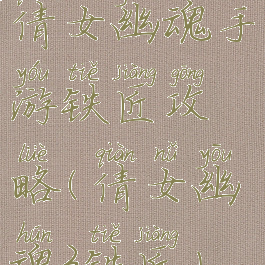 倩女幽魂手
yóu tiě jiàng gōng
游铁匠攻
lüè qiàn nǚ yōu
略(倩女幽
hún tiě jiàng
魂铁匠